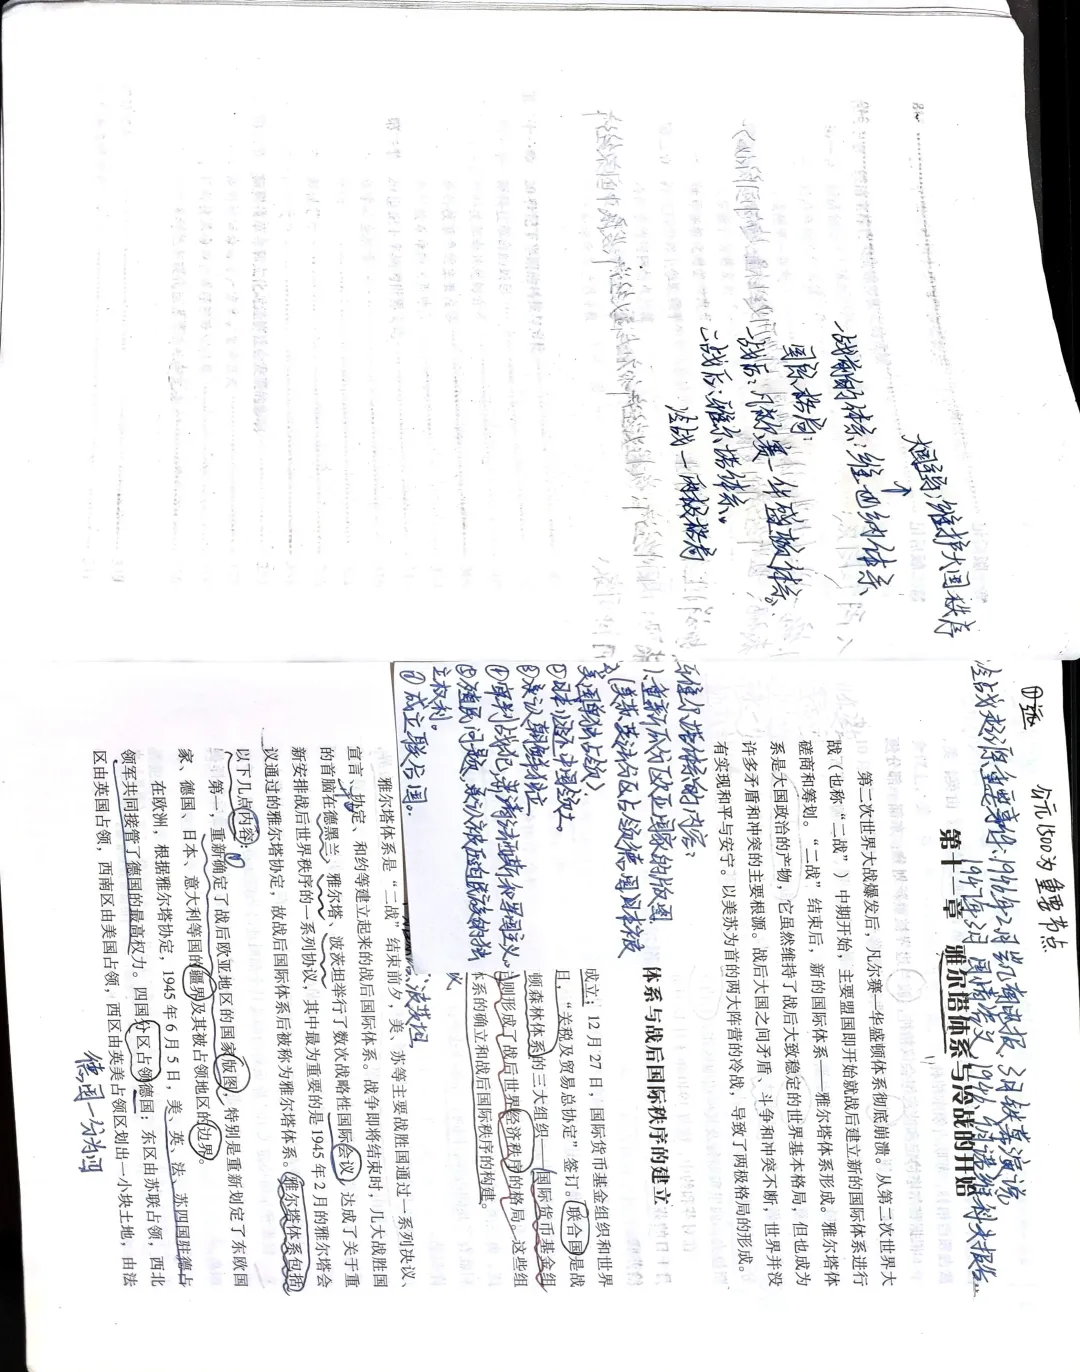 大国强：维护大国秩序
一战前的体系：维也纳体系
国际格局：
一战后：凡尔赛—华盛顿体系。
二战后：雅尔塔体系。
冷战—两极格局
公元1500为重要节点
冷战起源重要事件：1946年2月凯南电报、3月铁幕演说
1947年3月国情咨文、
第十一章 雅尔塔体系与冷战的开始
第二次世界大战爆发后，凡尔赛—华盛顿体系彻底崩溃。从第二次世界大
战（也称“二战”）中期开始，主要盟国即开始就战后建立新的国际体系进行
磋商和筹划。“二战”结束后，新的国际体系——雅尔塔体系形成。雅尔塔体
系是大国政治的产物，它虽然维持了战后大致稳定的世界基本格局，但也成为
许多矛盾和冲突的主要根源。战后大国之间矛盾、斗争和冲突不断，世界并没
有实现和平与安宁。以美苏为首的两大阵营的冷战，导致了两极格局的形成。
雅尔塔体系的内容：
1、重新瓜分了欧亚国家的版图
（美苏英法分区占领德国日本被
美国单独占领）
①日本归还中国领土。
③承认朝鲜独立
④审判战犯，肃清法西斯和军国主义
⑤殖民问题，承认被压迫民族的独
立权利。
⑦成立联合国。
体系与战后国际秩序的建立
成立；12月27日，国际货币基金组织和世界
日，“关税及贸易总协定”签订。联合国是战
顿森林体系的三大组织——国际货币基金组
则形成了战后世界经济秩序的格局。这些组
体系的确立和战后国际秩序的构建。
波茨坦
雅尔塔体系是“二战”结束前夕，美、苏等主要战胜国通过一系列决议、
宣言、协定、和约等建立起来的战后国际体系。战争即将结束时，几大战胜国
的首脑在德黑兰、雅尔塔、波茨坦举行了数次战略性国际会议，达成了关于重
新安排战后世界秩序的一系列协议，其中最为重要的是1945年2月的雅尔塔会
议通过的雅尔塔协定，故战后国际体系后被称为雅尔塔体系。雅尔塔体系包括
以下几点内容：
第一，重新确定了战后欧亚地区的国家版图，特别是重新划定了东欧国
家、德国、日本、意大利等国的疆界及其被占领地区的边界。
在欧洲，根据雅尔塔协定，1945年6月5日，美、英、法、苏四国驻德占
领军共同接管了德国的最高权力。四国分区占领德国：东区由苏联占领，西北
区由英国占领，西南区由美国占领，西区由英美占领区划出一小块土地，由法
德国一分为四